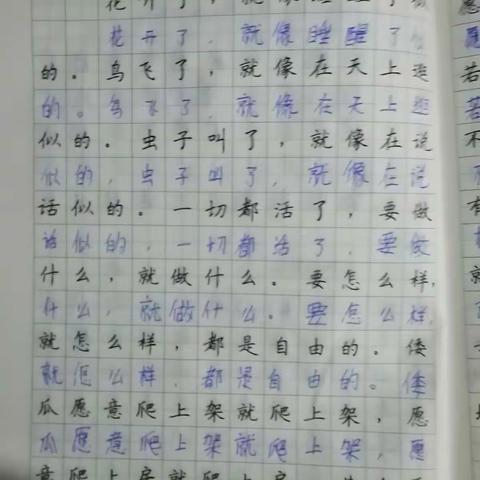 花开了，就像睡醒了
花开了，就像睡醒了
的。鸟飞了，就像在天上逛
的。鸟飞了，就像在天上逛
似的。虫子叫了，就像在说
似的，虫子叫了，就像在说
话似的。一切都活了，要做
话似的，一切都活了，要做
什么，就做什么。要怎么样，
什么，就做什么。要怎么样，
就怎么样，都是自由的。倭
就怎么样，都是自由的。倭
瓜愿意爬上架就爬上架，愿
瓜愿意爬上架就爬上架，愿
意爬上房就爬上房
愿
若
若
不
有
就